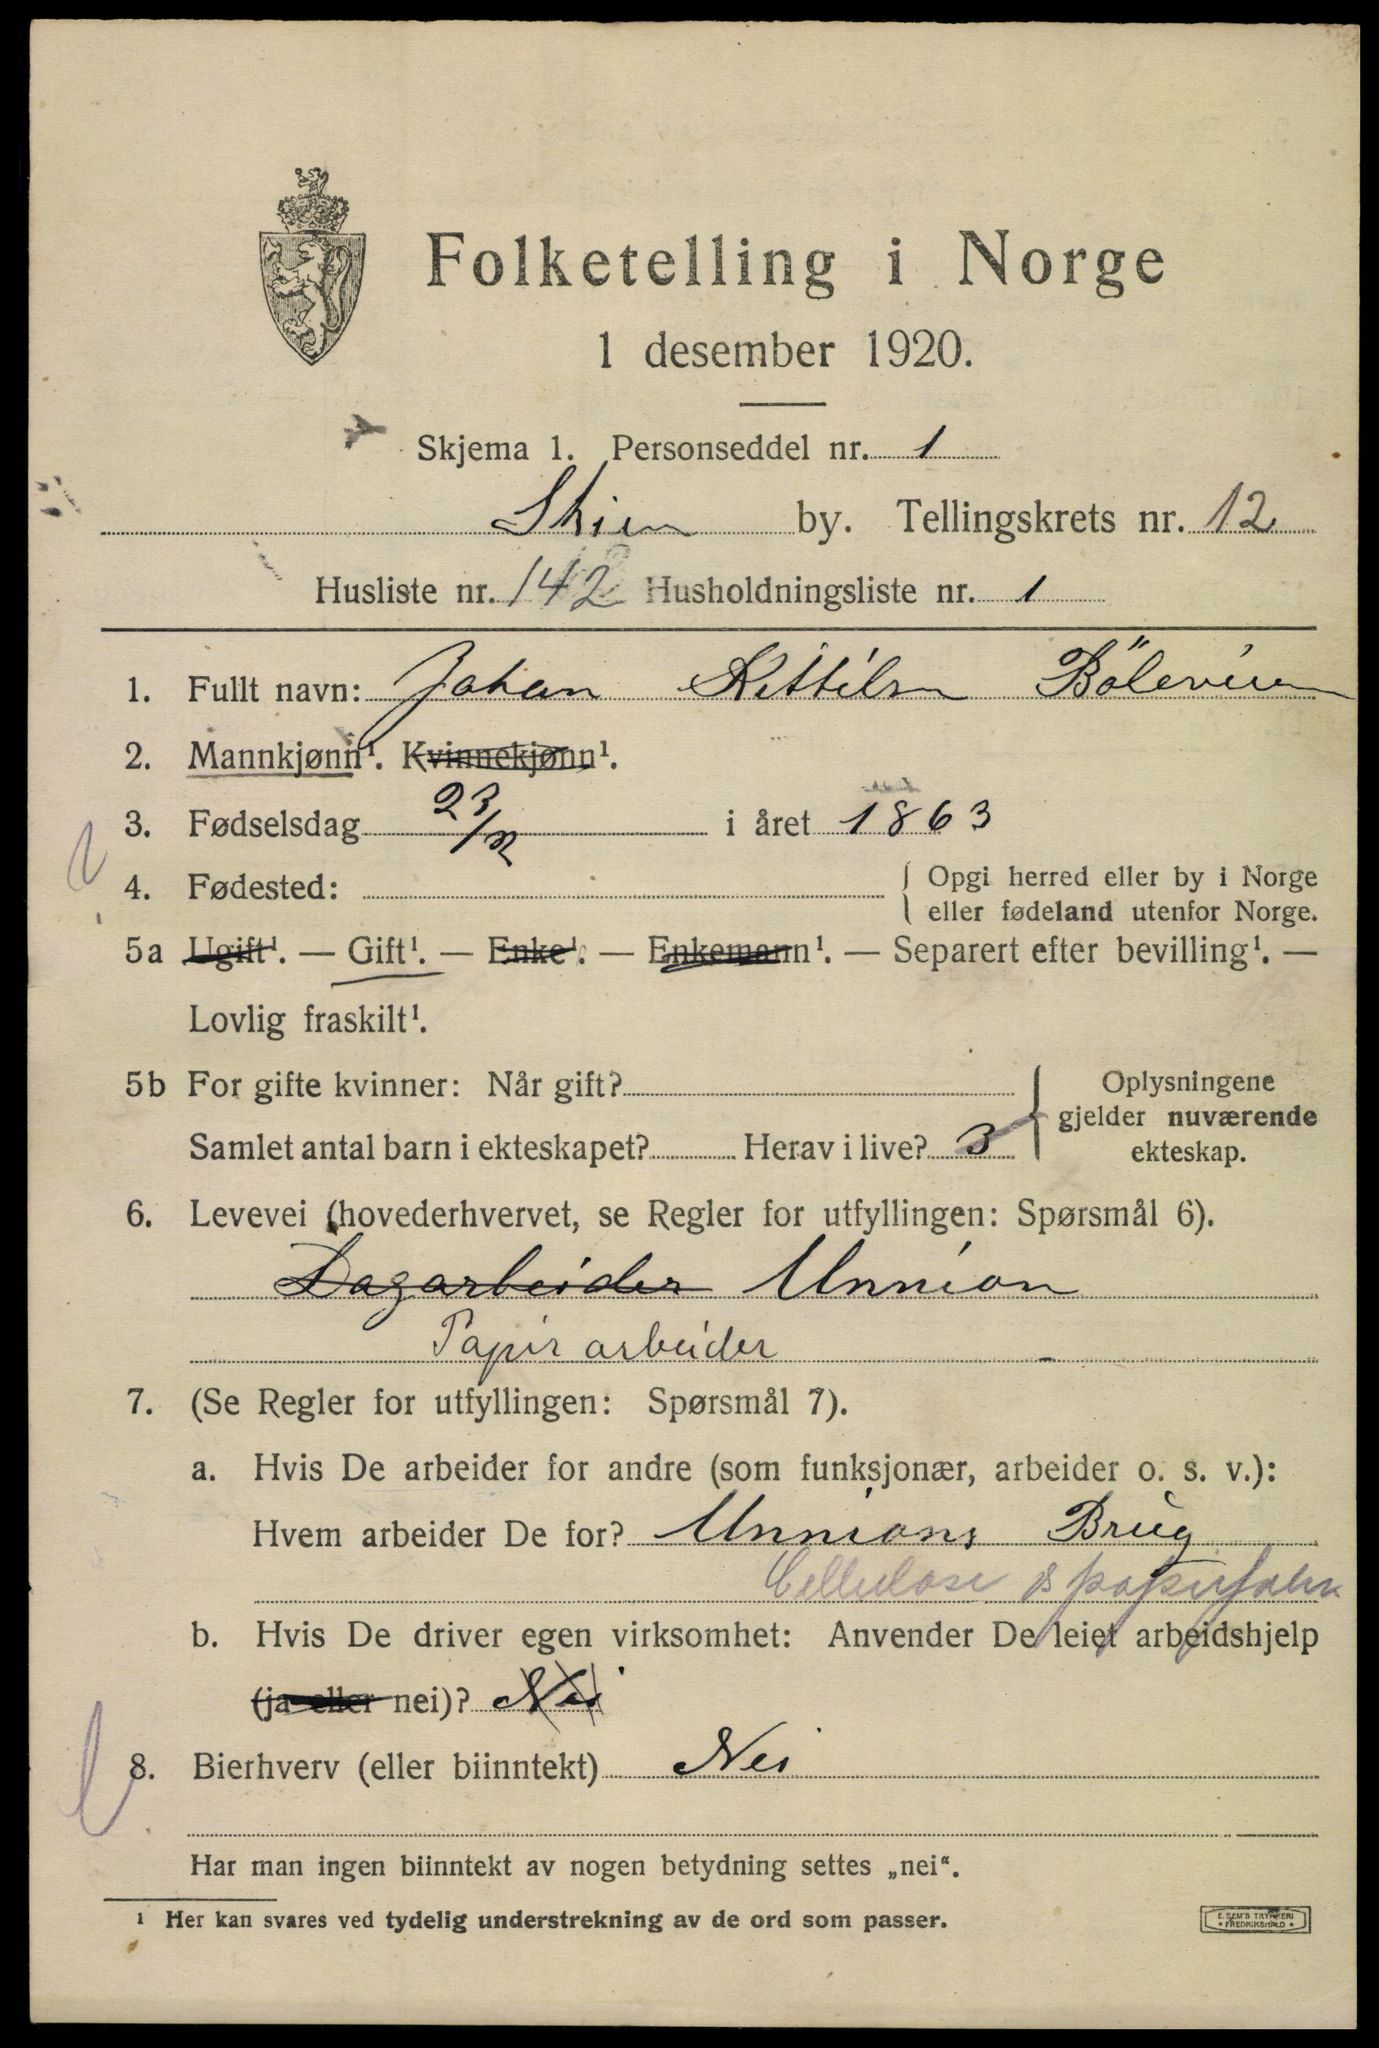 Folketelling i Norge
1 desember 1920.
Skjema 1. Personseddel nr. 1
Skien by. Tellingskrets nr. 12
Husliste nr. 142 Husholdningsliste nr. 1
1. Fullt navn: Johan Kittilsen Böleveien
2. Mannkjønn¹. Kvinnekjønn¹.
3. Fødselsdag 23/12 i året 1863
4. Fødested: Opgi herred eller by i Norge
eller fødeland utenfor Norge.
5a Ugift¹. — Gift¹. — Enke¹. — Enkemann¹. — Separert efter bevilling¹. —
Lovlig fraskilt¹.
5b For gifte kvinner: Når gift? Oplysningene
gjelder nuværende
Samlet antal barn i ekteskapet? Herav i live? 3
ekteskap.
6. Levevei (hovederhvervet, se Regler for utfyllingen: Spørsmål 6).
Dagarbeider Unnion
Papir arbeider
7. (Se Regler for utfyllingen: Spørsmål 7).
a. Hvis De arbeider for andre (som funksjonær, arbeider o. s. v.):
Hvem arbeider De for? Unnions Brug
Cellulose & papirfabr
b. Hvis De driver egen virksomhet: Anvender De leiet arbeidshjelp
(ja eller nei)? Nei
8. Bierhverv (eller biinntekt) Nei
Har man ingen biinntekt av nogen betydning settes „nei“.
¹ Her kan svares ved tydelig understrekning av de ord som passer.
E. SEM'S TRYKKERI
FREDRIKSHALD